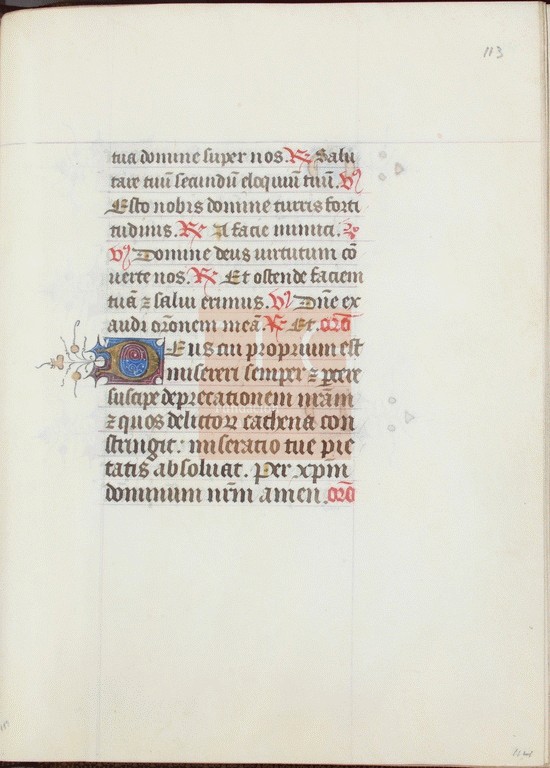 113
tua domine super nos. ℟ Salu
tare tuū secundū eloquiū tuū. ℣
Esto nobis domine turris forti
tudinis. ℟ A facie inimici.
℣ Domine deus virtutum cō
uerte nos. ℟ Et ostende faciem
tuā ⁊ salui erimus. ℣ Dn̄e ex
audi or̄onem meā. ℟ Et. or̄o
Deus cui proprium est
misereri semper ⁊ ꝑcere
suscipe deprecationem nr̄am
⁊ quos delictoꝝ cathena con
stringit: miseratio tue pie
tatis absoluat. Per xp̄m
dominum nr̄m amen. or̄o